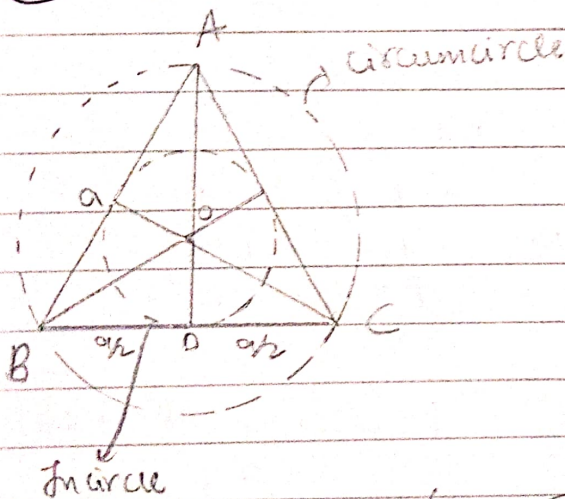 A
circumcircle
a
o
B
a/2
D
a/2
C
Incircle